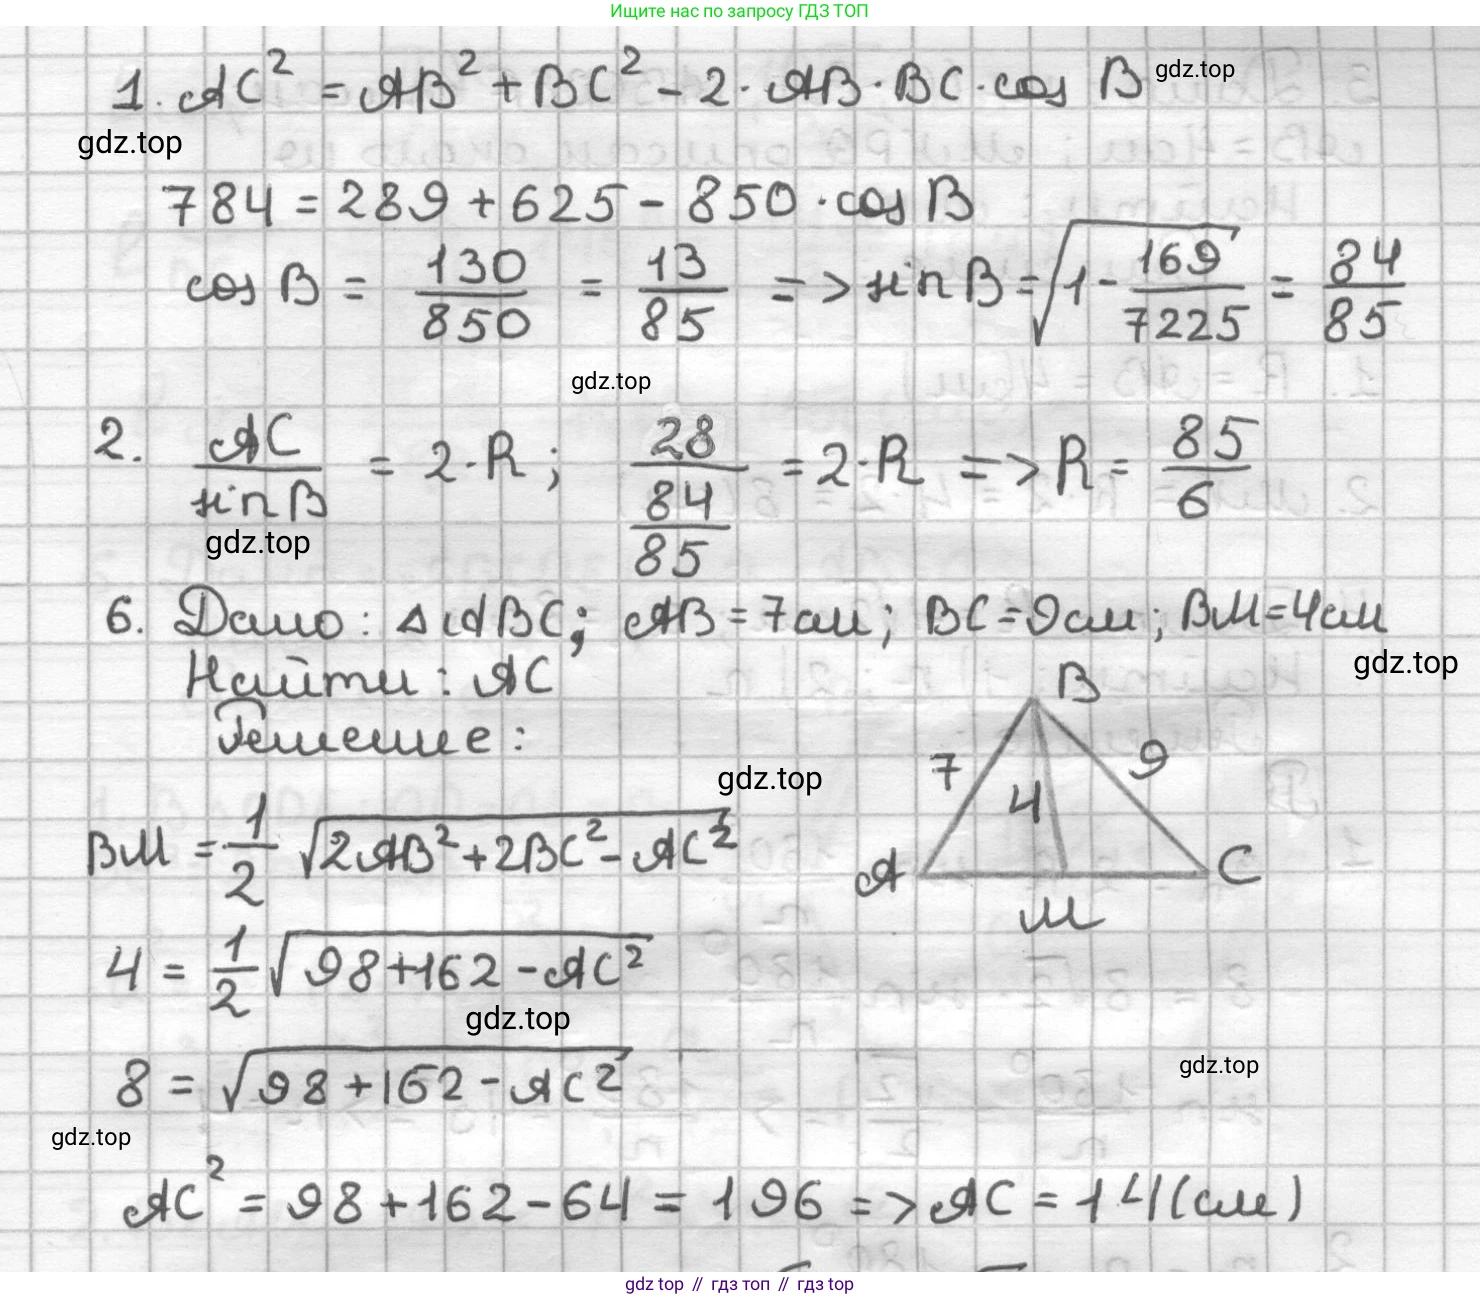 Ищите нас по запросу ГДЗ ТОП
1. AC² = AB² + BC² - 2 · AB · BC · cos B
gdz.top
gdz.top
784 = 289 + 625 - 850 · cos B
cos B = 130/850 = 13/85 => sin B = √(1 - 169/7225) = 84/85
gdz.top
2. AC/sin B = 2 · R; 28/(84/85) = 2 · R => R = 85/6
gdz.top
6. Дано: △ABC; AB = 7см; BC = 9см; BM = 4см
gdz.top
Найти: AC
Решение:
B
7
9
4
A
C
M
gdz.top
BM = 1/2 √(2AB² + 2BC² - AC²)
4 = 1/2 √(98 + 162 - AC²)
gdz.top
8 = √(98 + 162 - AC²)
gdz.top
gdz.top
AC² = 98 + 162 - 64 = 196 => AC = 14 (см)
gdz top // гдз топ // гдз top